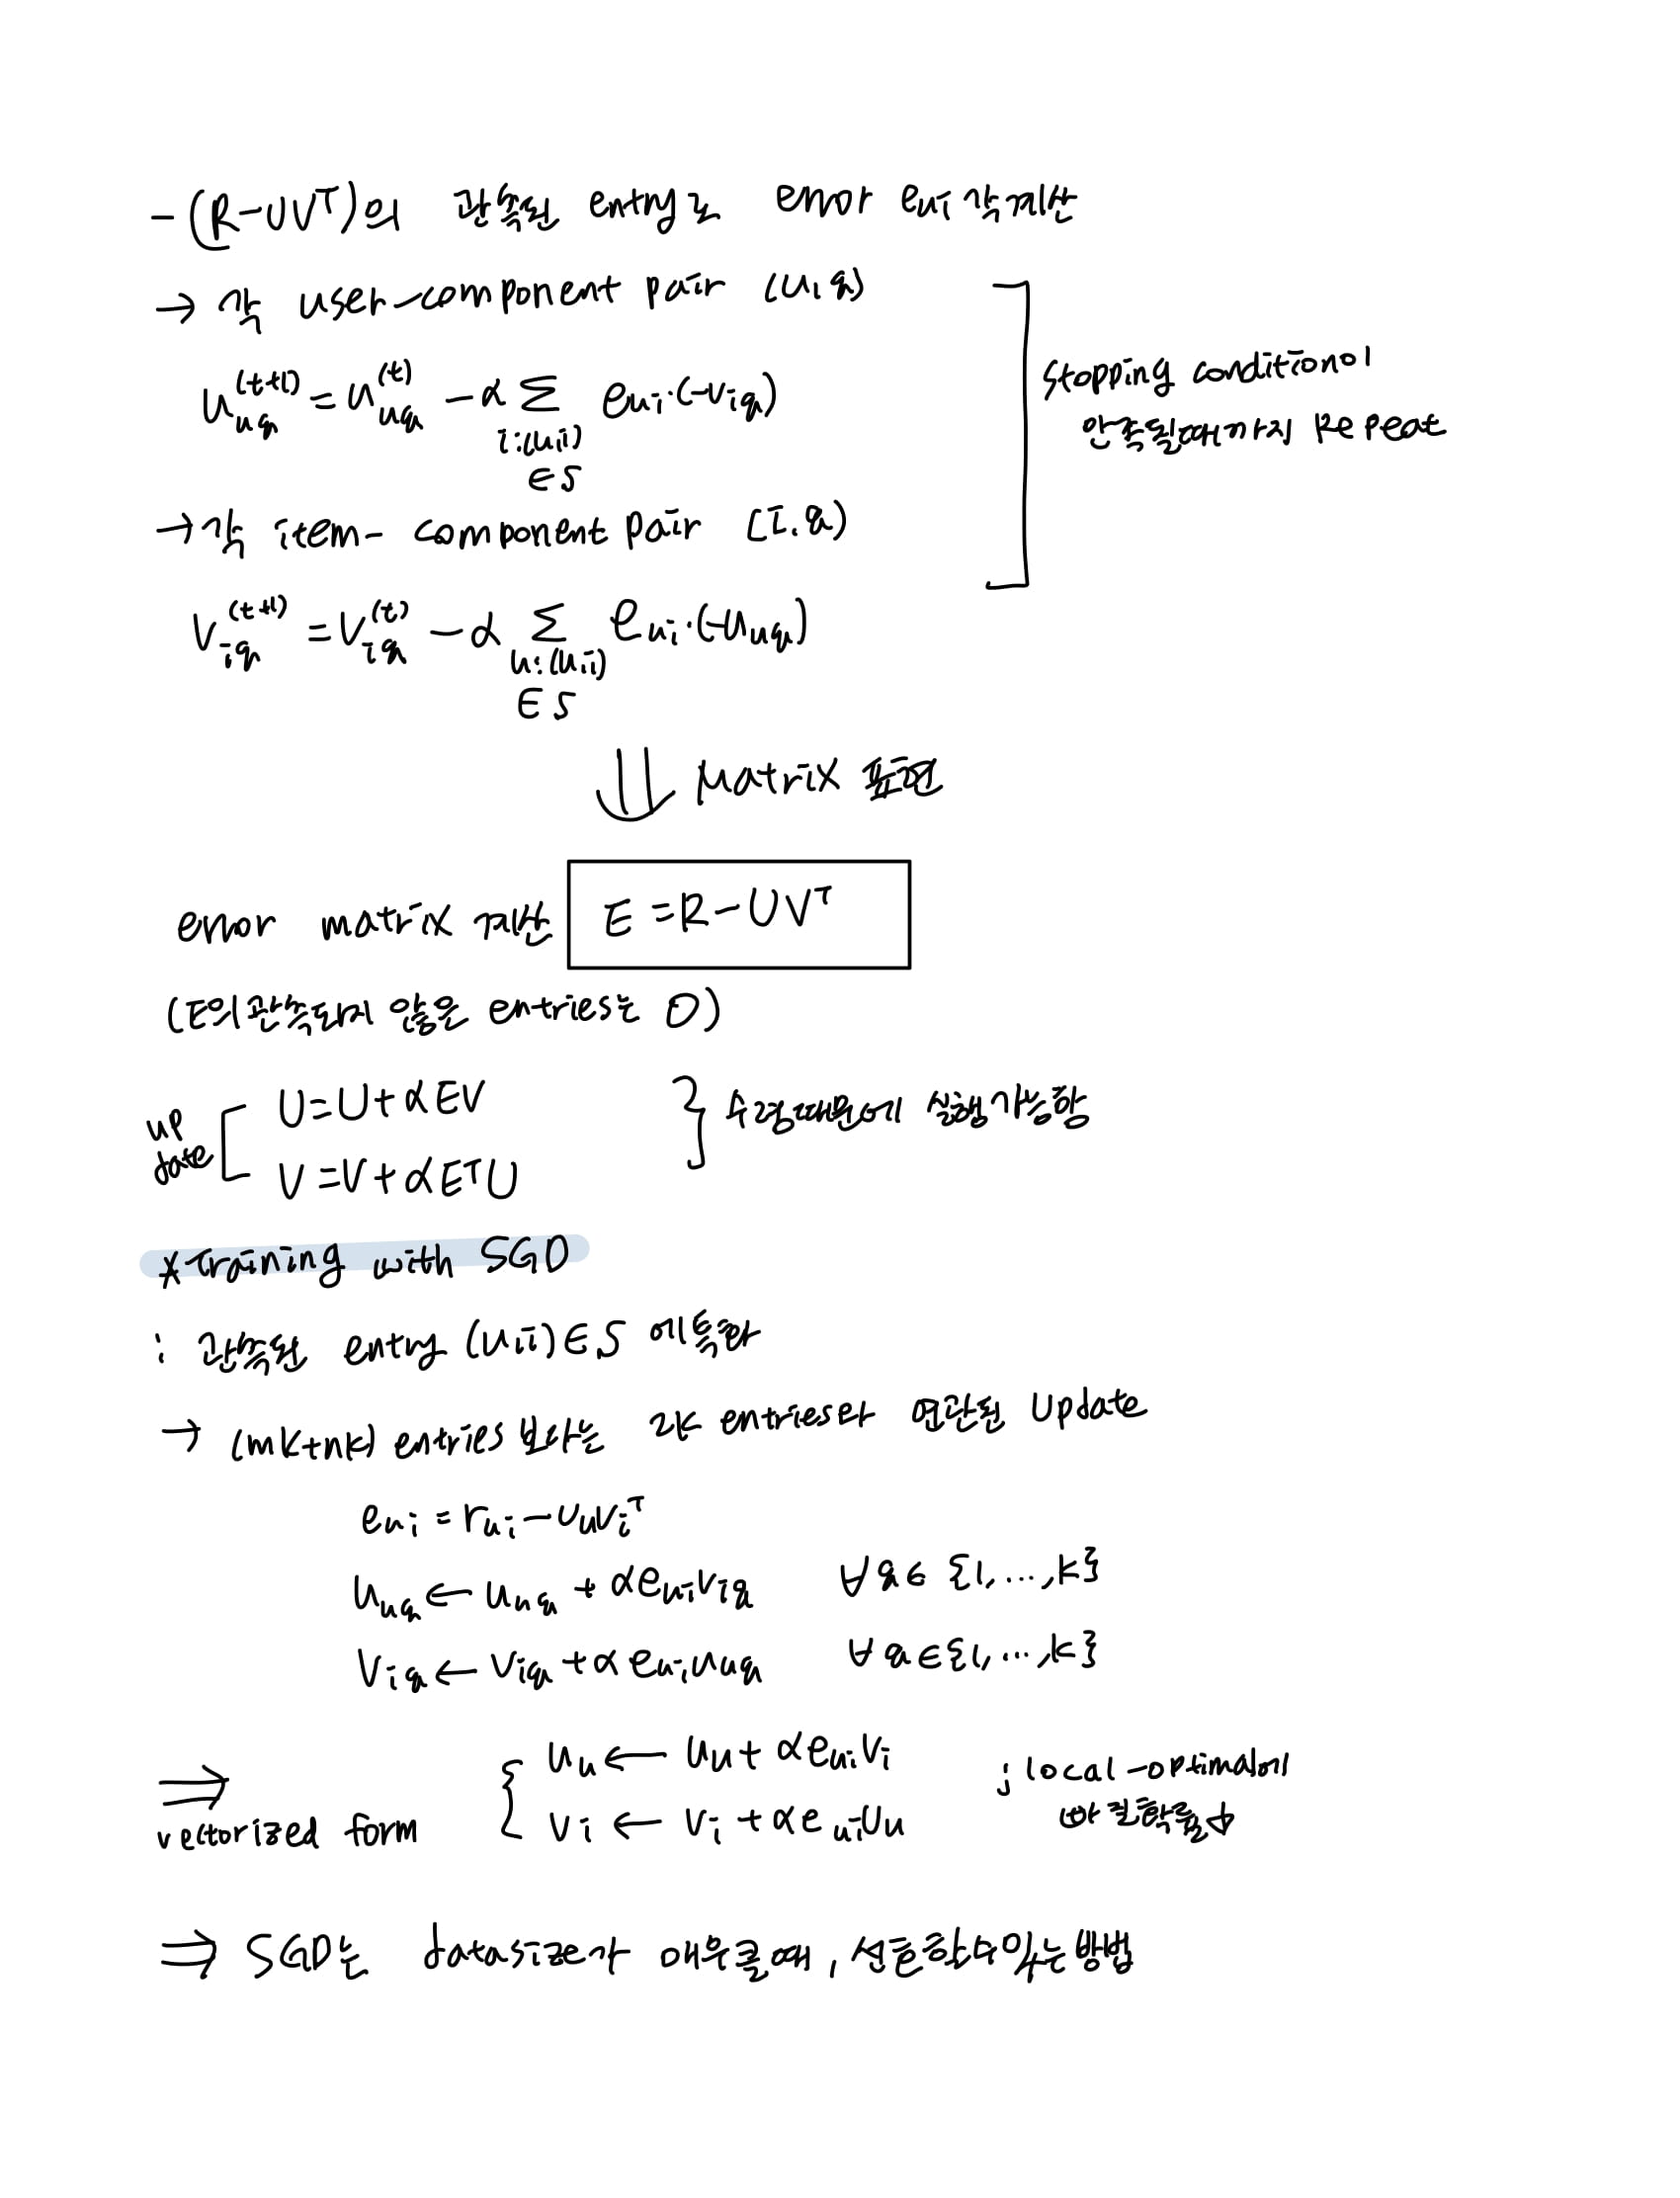 - (R-UVᵀ)의 관측된 entry로 error e_ui 각 계산
→ 각 user-component pair (u,q)
u_uq^(t+1) = u_uq^(t) - α Σ_{i:(u,i)∈S} e_ui·(-v_iq)
stopping condition이
만족될때까지 Repeat
→ 각 item-component pair (i,q)
v_iq^(t+1) = v_iq^(t) - α Σ_{u:(u,i)∈S} e_ui·(-u_uq)
⇓ Matrix 표현
error matrix 계산 E = R-UVᵀ
(E의 관측되지 않은 entries는 0)
update
U = U + αEV
V = V + αEᵀU
수렴때문에 실행가능함
*Training with SGD
: 관측된 entry (u,i)∈S 에 특화
→ (mk+nk) entries 보다는 2k entries와 연관된 Update
e_ui = r_ui - u_u v_iᵀ
u_uq ← u_uq + αe_ui v_iq ∀q∈{1,...,k}
v_iq ← v_iq + αe_ui u_uq ∀q∈{1,...,k}
⇒ vectorized form
u_u ← u_u + αe_ui v_i
v_i ← v_i + αe_ui u_u
; local-optimal에
빠질확률↓
⇒ SGD는 datasize가 매우클때, 선호할수있는방법